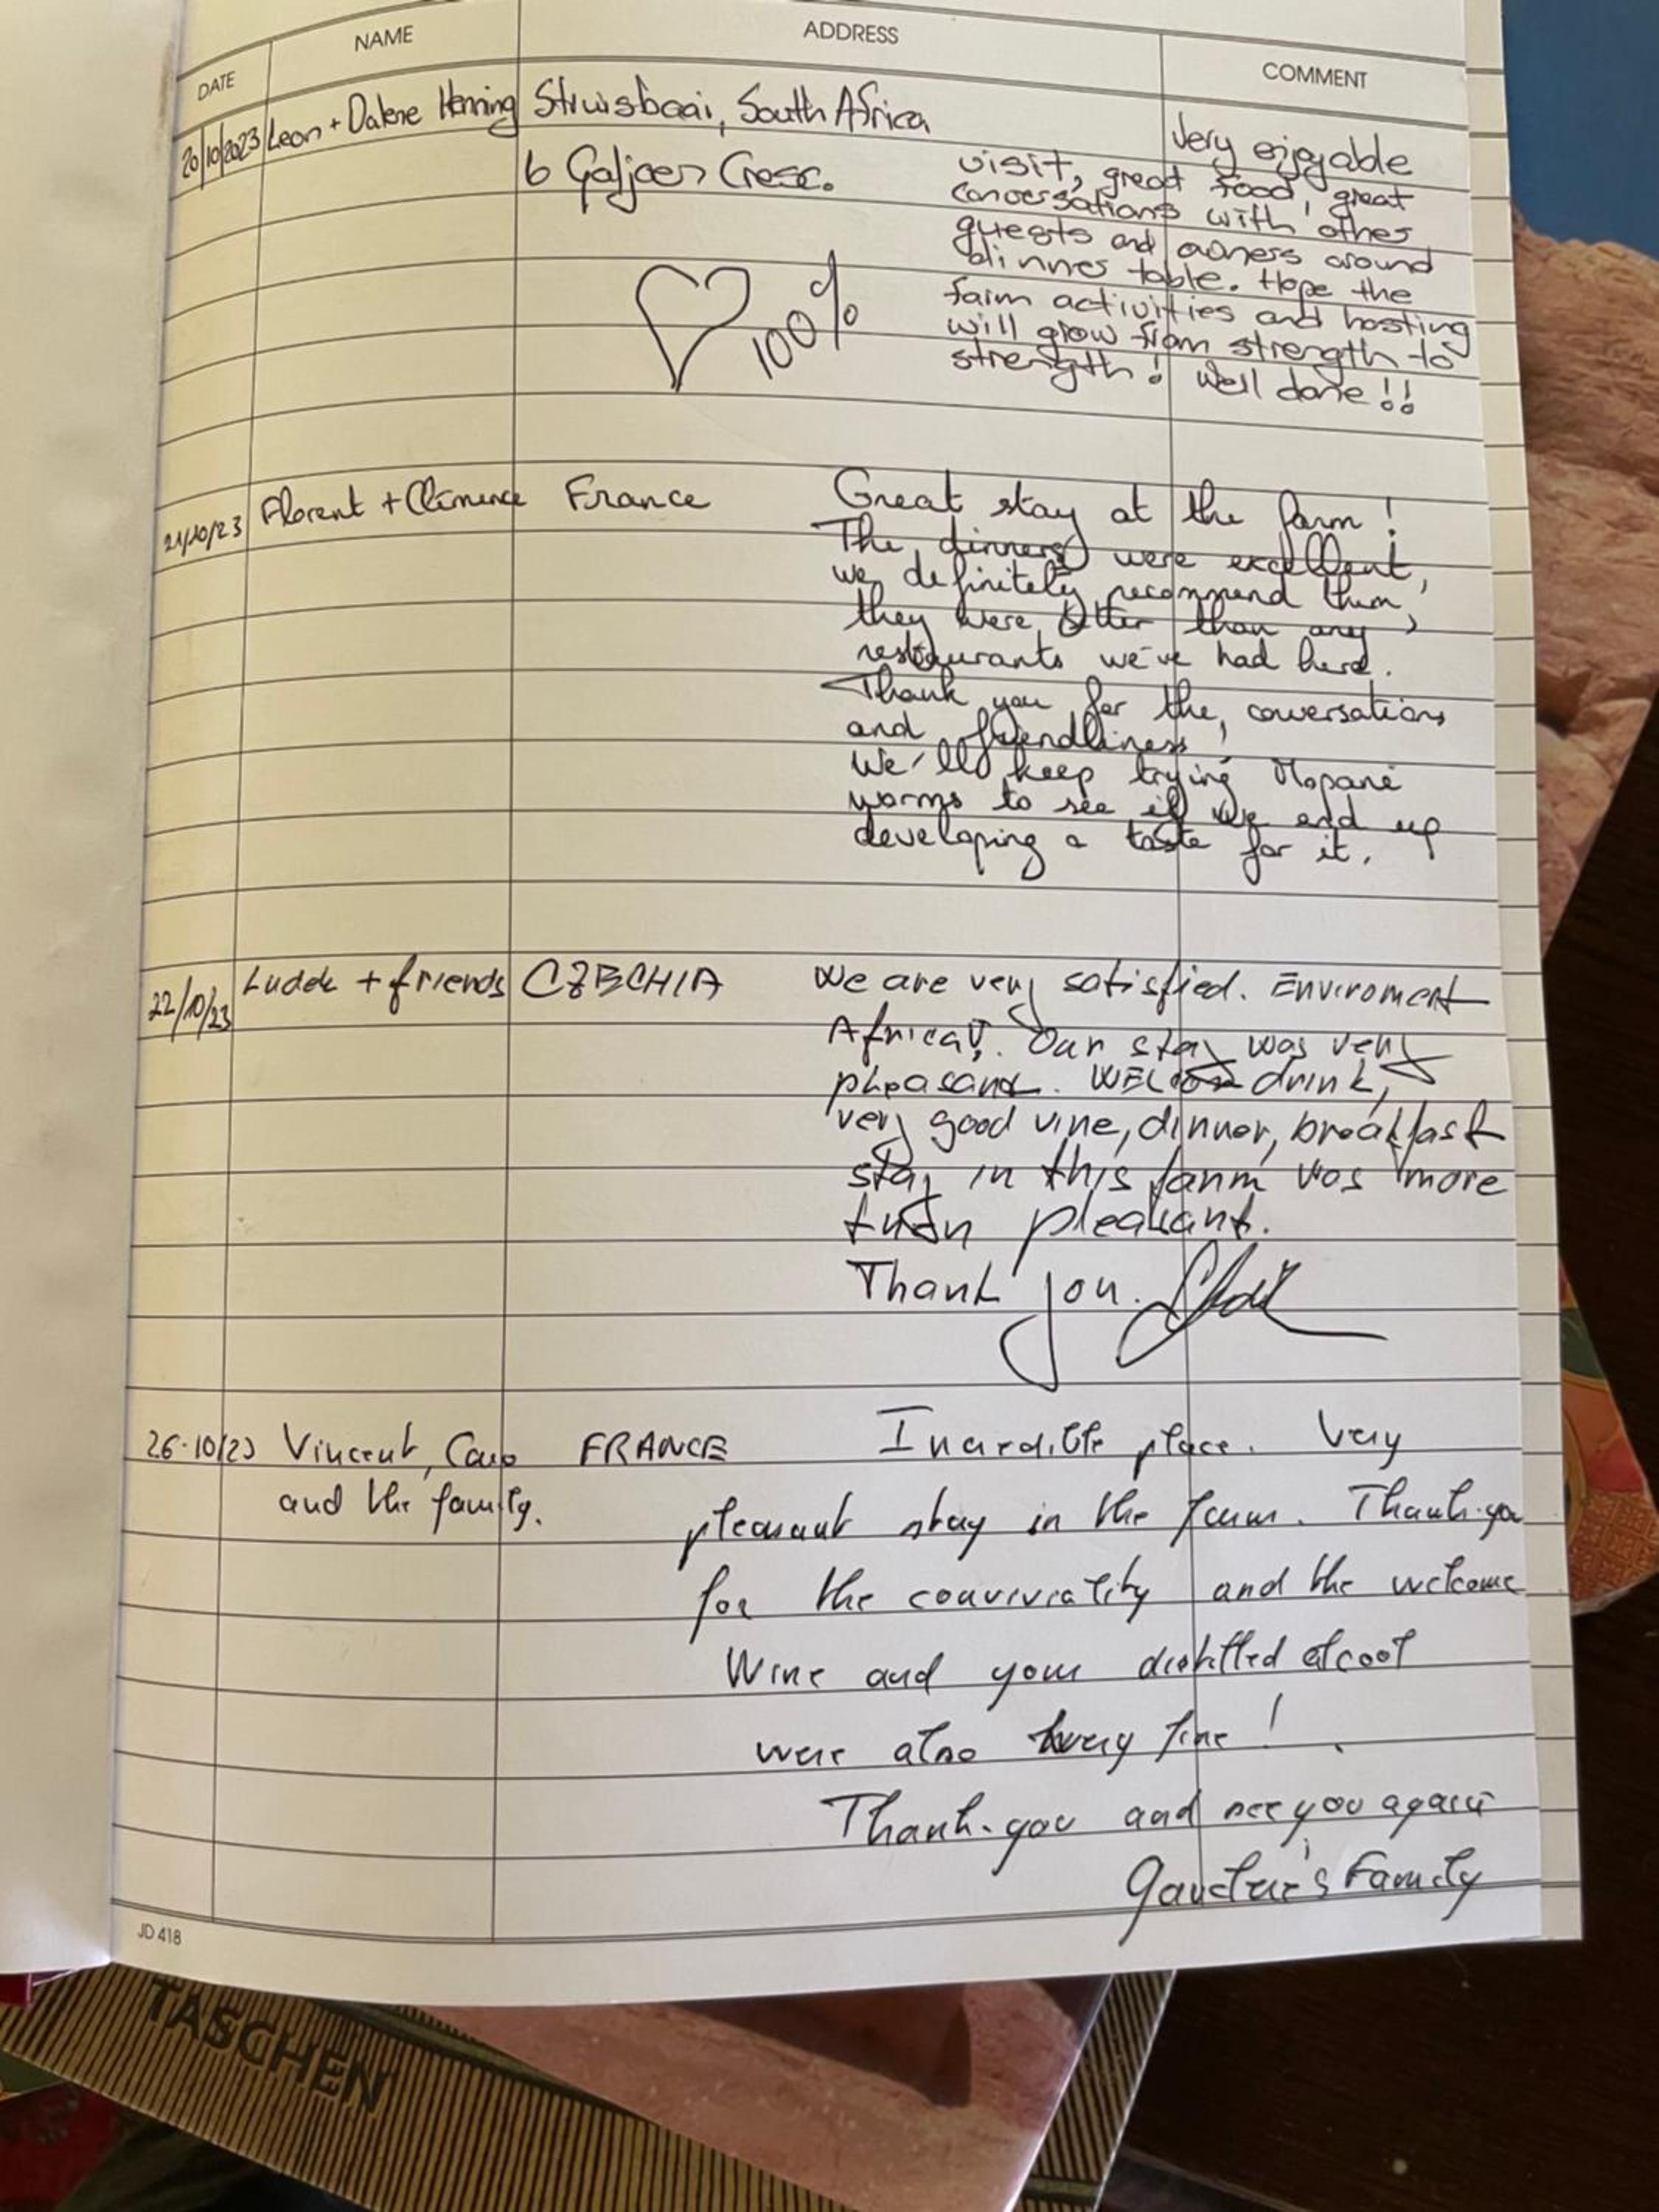 DATE NAME ADDRESS COMMENT
20/10/2023 Leon + Dalene Henning Struisbaai, South Africa
6 Galjoen Cresc.
Very enjoyable
visit, great food, great
conversations with other
guests and owners around
dinner table. Hope the
farm activities and hosting
will grow from strength to
strength! Well done!!
100%
21/10/23 Florent + Clémence France Great stay at the farm!
The dinners were excellent,
we definitely recommend them,
they were better than any
restaurants we've had here.
Thank you for the conversations
and friendliness!
We'll keep trying Mopane
worms to see if we end up
developing a taste for it.
22/10/23 Luděk + friends CZECHIA We are very satisfied. Enviroment
Africa!. Our stay was very
pleasand. WELCOM drink,
very good vine, dinner, breakfast
stay in this farm vos more
than pleasant.
Thank you.
26.10/23 Vincent, and the family. FRANCE
Incredible place. Very
pleasant stay in the farm. Thank-you
for the conviviality and the welcome
Wine and your distilled alcool
were also very fine!
Thank-you and see you again
Family
JD 418
TASCHEN